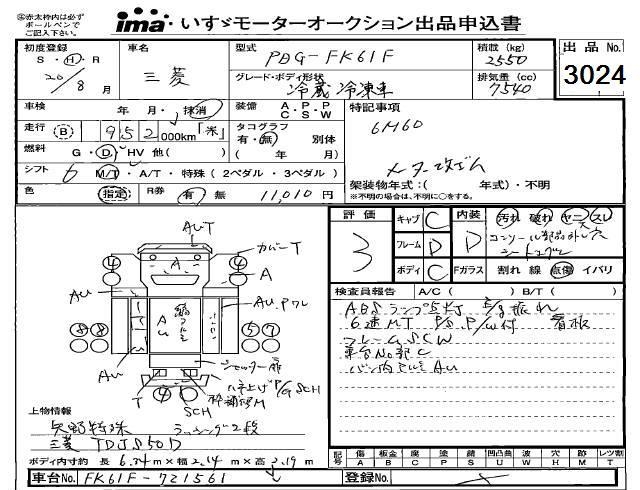 ㊟赤太枠内は必ず
ボールペンで
ご記入下さい。
ima いすゞモーターオークション出品申込書
初度登録 S・H・R 20/8月
車名 三菱
型式 PDG-FK61F
グレード・ボディ形状 冷蔵冷凍車
積載(kg) 2550
排気量(cc) 7540
出品No. 3024
車検 年 月・抹消
装備 A.C P.S P.W
特記事項
6M60
メーター改ざん
走行 (B) 952,000km「米」
タコグラフ 有・無 別体 ( 年 月)
燃料 G・D・HV 他( )
シフト 6 M/T・A/T・特殊(2ペダル・3ペダル)
架装物年式:( 年式)・不明
※不明の場合は、不明に○をする。
色 指定
R券 有 無 11,010円
評価 3
キャブ C
フレーム D
ボディ C
内装 D
Fガラス
汚れ 破れ ヤニ スレ
シートスレ
割れ 線 点傷 イバリ
検査員報告 A/C( ) B/T( )
ABSランプ
6速MT P/S.P/W付 看板
フレームSCW
車台No部C
バン内アルミAu
AuT
カバーT
A
A
Au
Au
Au.Pワレ
Au
T
SCH
P/G SCH
④ ④
⑧⑧ ⑤⑦
④
上物情報
矢野特殊 ラッシング2段
三菱 TDJS50D
ボディ内寸約 長 6.34m×幅 2.14m×高 2.19m
記号 傷A 板金B 腐C 塗P 錆S 凹凸曲U 波W 穴H 跡M レツ割T
車台No. FK61F-721561
登録No.